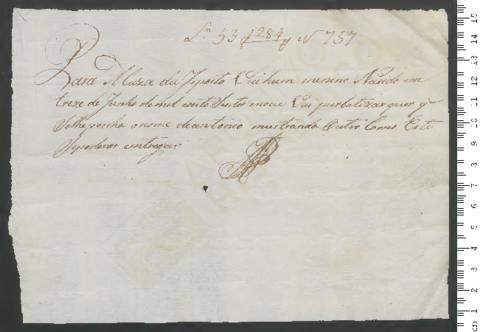 Lº 53 f 284 y Nº 757
Para Meza de Spirito Vai hum menino Nasido em
treze de Junho de mil oito sentos e nove Vai por batizar quer q
Selhe ponha o nome de antonio mostrando Outro Como Este
Sepodera entregar